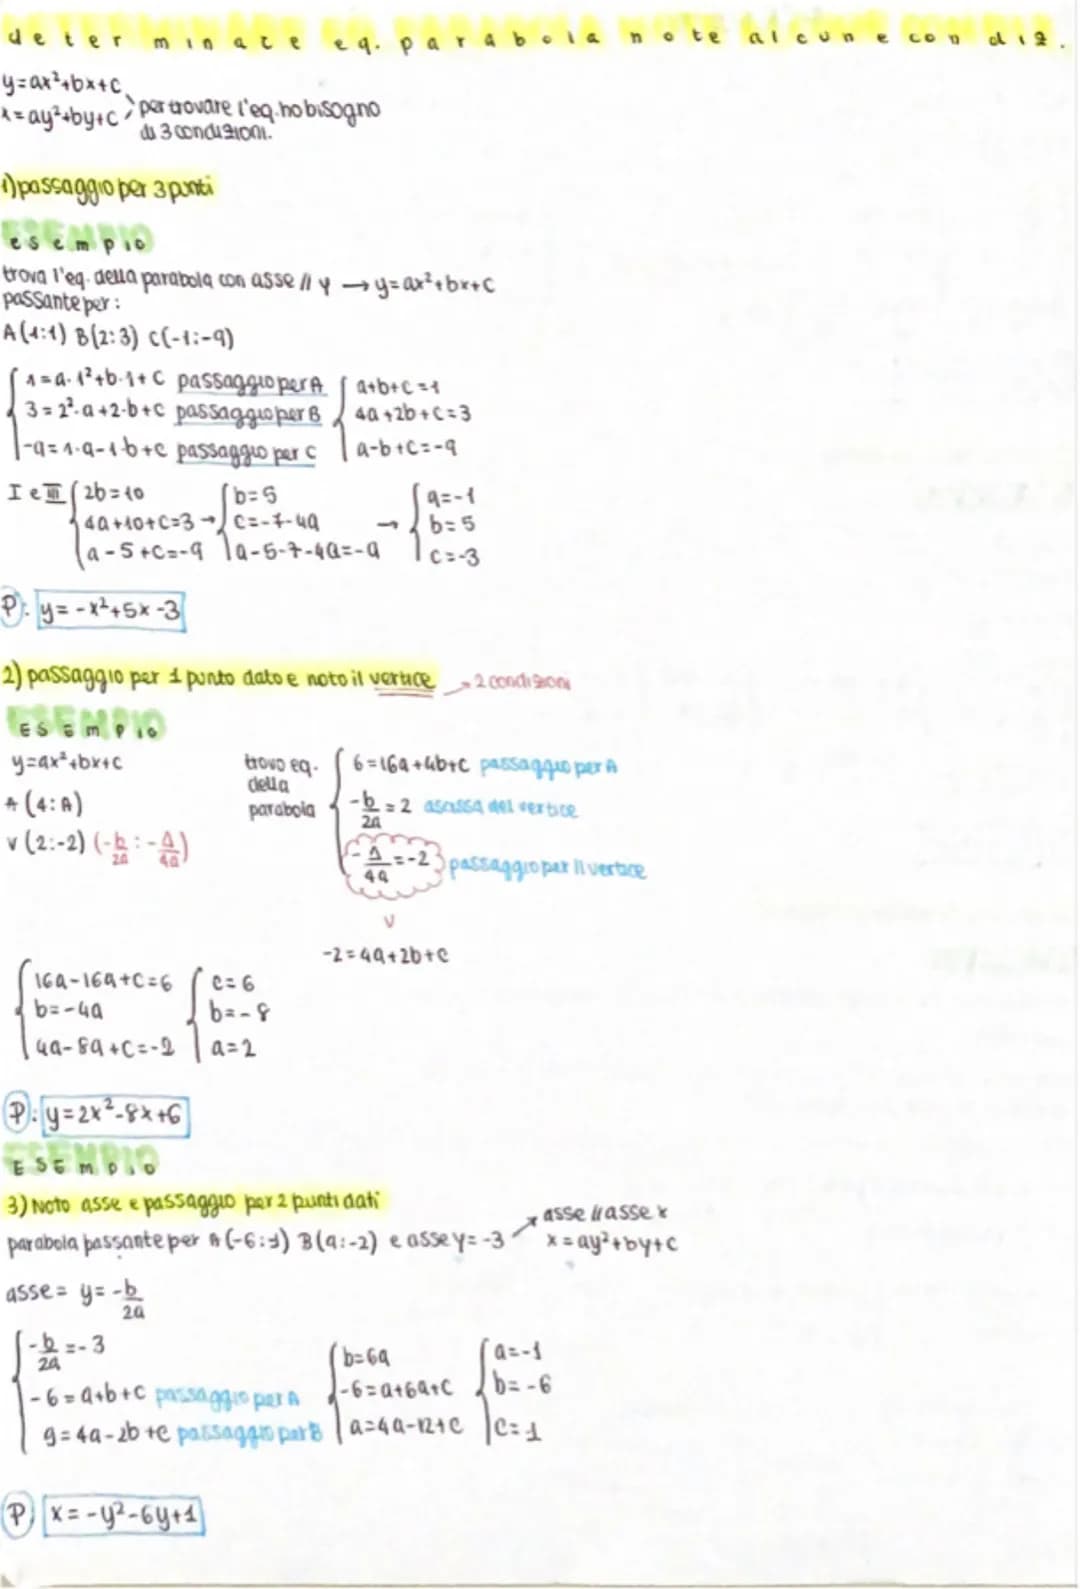 determinare eq. parabola note alcune condiz.
y=ax²+bx+c
x=ay²+by+c
per trovare l'eq. ho bisogno
di 3 condizioni.
1) passaggio per 3 punti
esempio
trova l'eq. della parabola con asse // y → y=ax²+bx+c
passante per:
A(1;1) B(2;3) C(-1;-9)
1=a·1²+b·1+c passaggio per A
3=2²·a+2·b+c passaggio per B
-9=1·a-1·b+c passaggio per C
a+b+c=1
4a+2b+c=3
a-b+c=-9
I e III
2b=10
4a+10+c=3 →
a-5+c=-9
b=5
c=-7-4a
a-5-7-4a=-9
→
a=-1
b=5
c=-3
P: y=-x²+5x-3
2) passaggio per 1 punto dato e noto il vertice → 2 condizioni
ESEMPIO
y=ax²+bx+c
A(4:A)
V(2:-2) (-b/2a : -Δ/4a)
trovo eq.
della
parabola
6=16a+4b+c passaggio per A
-b/2a=2 ascissa del vertice
-Δ/4a=-2 passaggio per il vertice
-2=4a+2b+c
16a-16a+c=6
b=-4a
4a-8a+c=-2
c=6
b=-8
a=2
P: y=2x²-8x+6
ESEMPIO
3) Noto asse e passaggio per 2 punti dati
parabola passante per A(-6:1) B(9:-2) e asse y=-3
asse // asse x
x=ay²+by+c
asse= y=-b/2a
-b/2a=-3
-6=a+b+c passaggio per A
9=4a-2b+c passaggio per B
b=6a
-6=a+6a+c
9=4a-12+c
a=-1
b=-6
c=1
P: x=-y²-6y+1